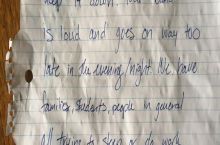 keep it down. Your
is loud and goes on way too
late in the evening/night. We have
families, students, people in general
all trying to sleep or do work